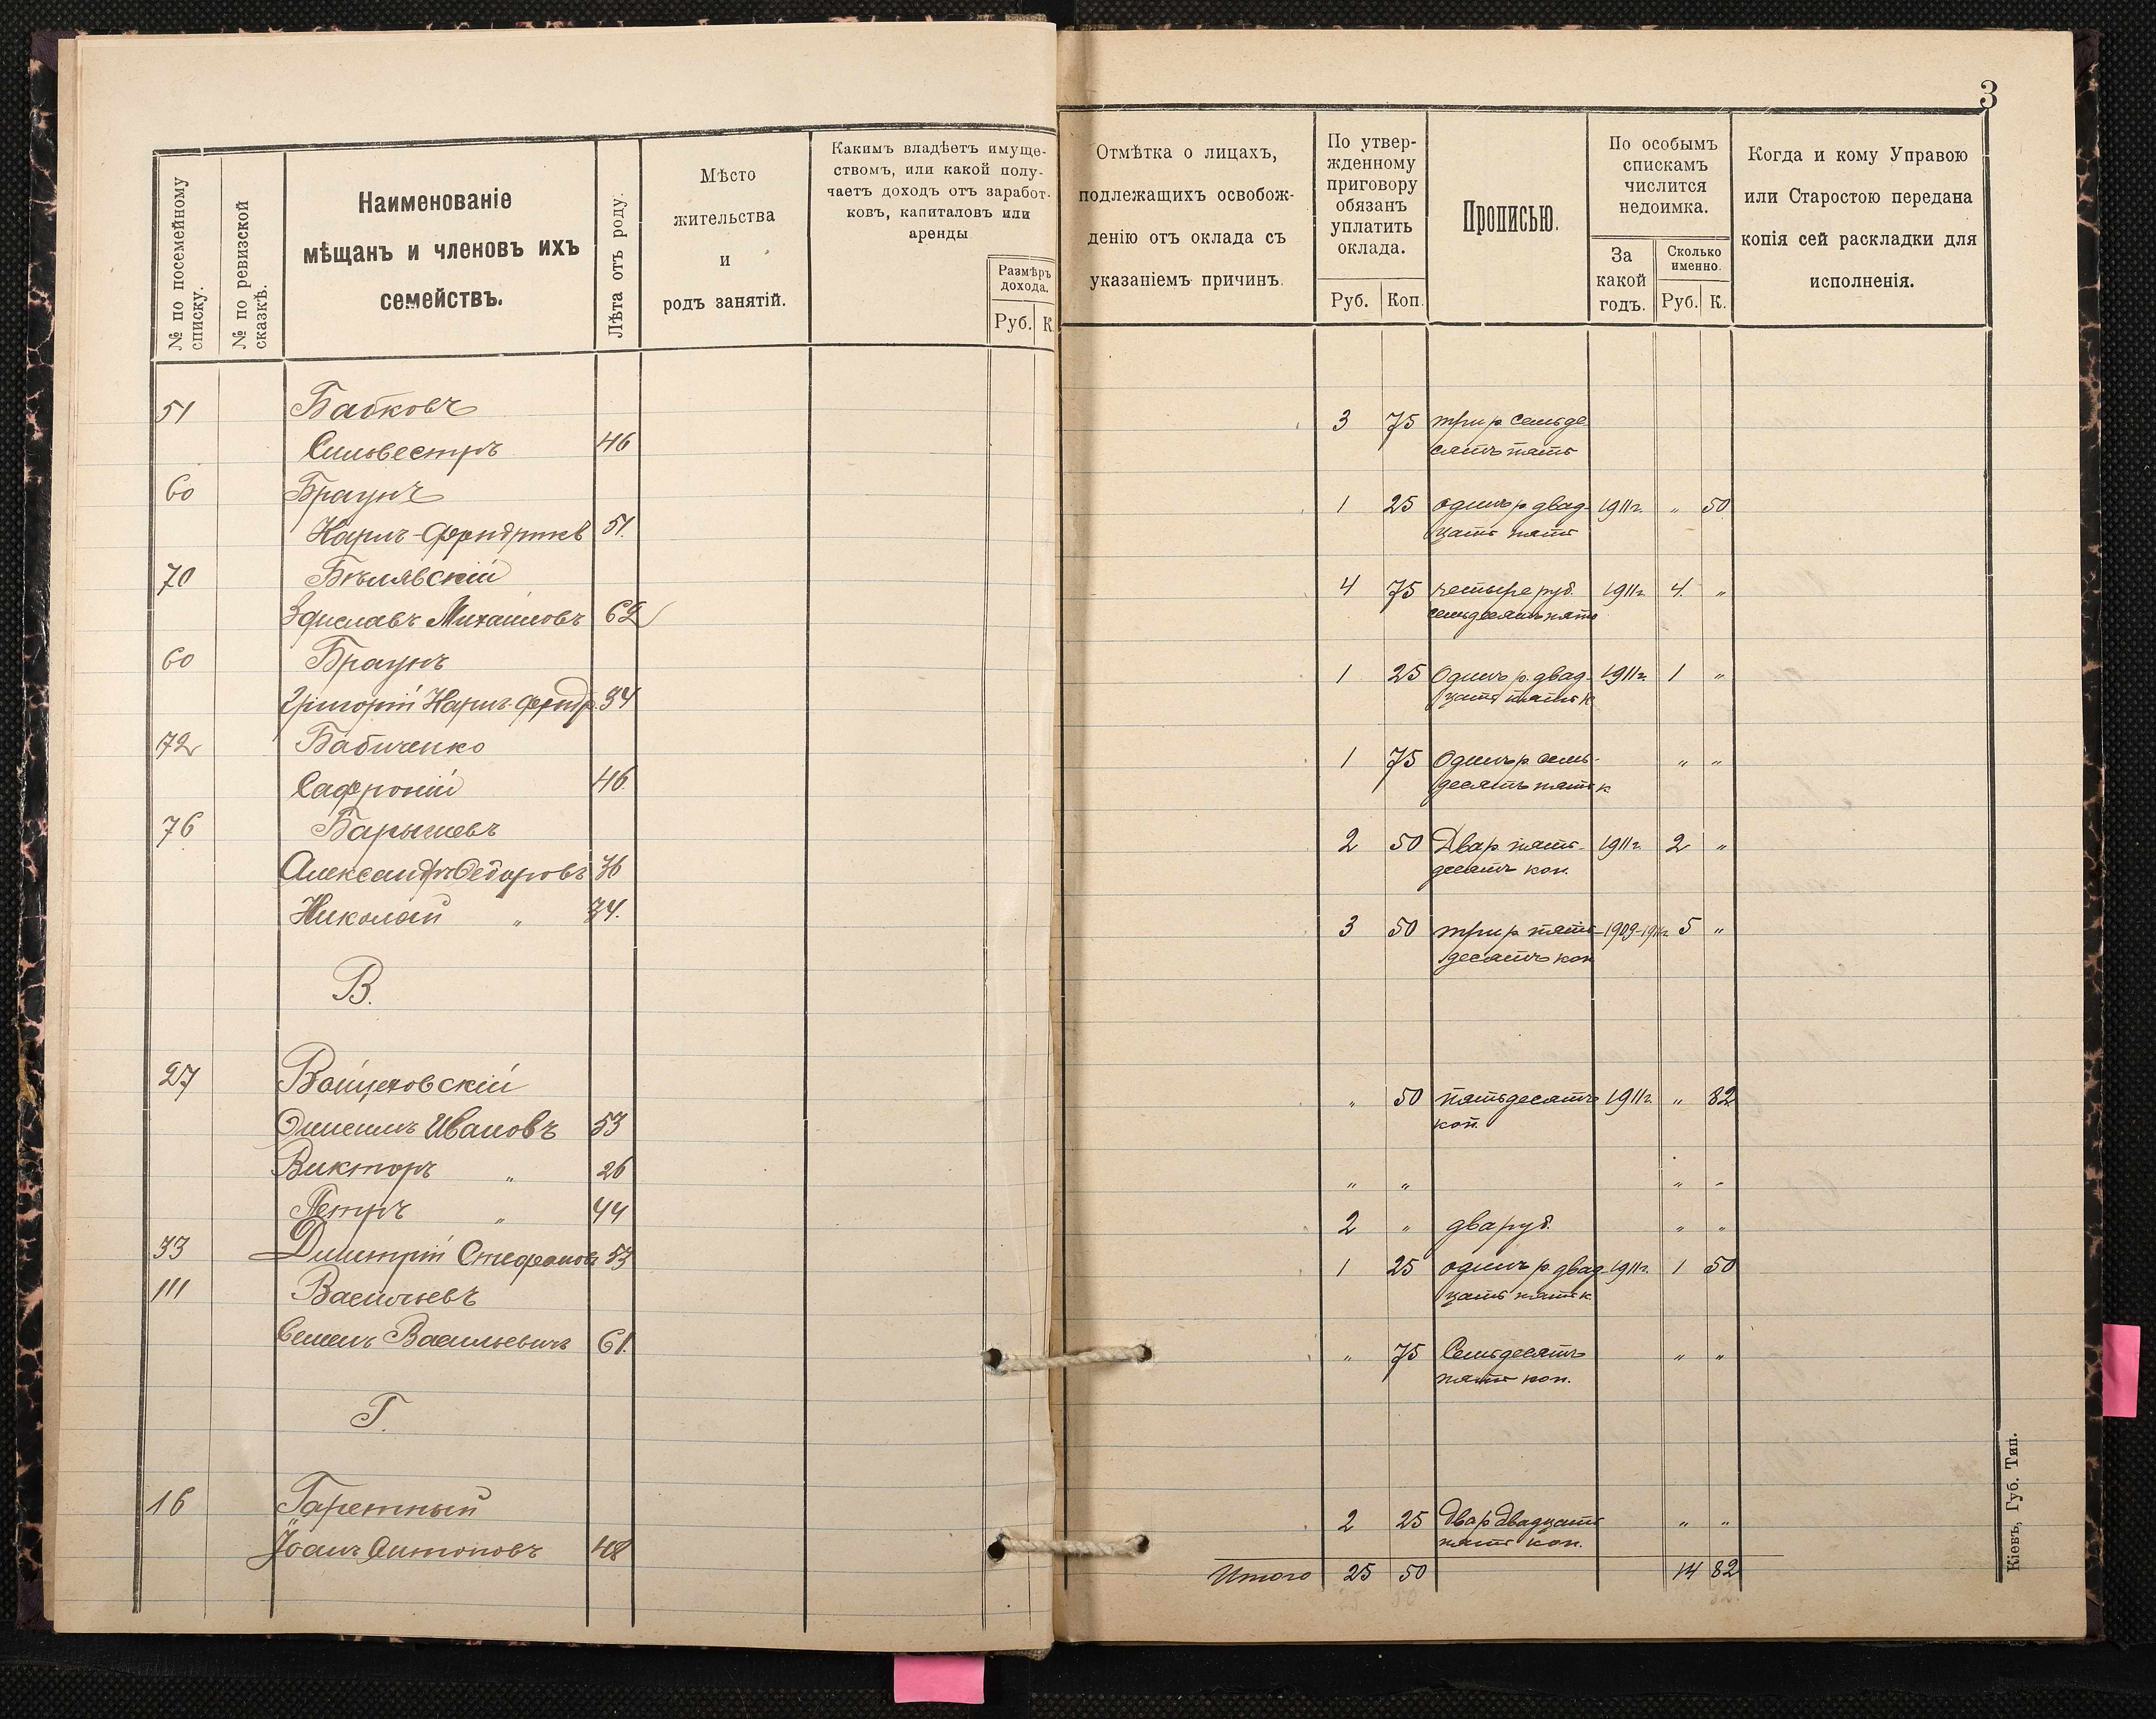 3
№ по посемейному списку.
№ по ревизской сказкѣ.
Наименованіе
мѣщанъ и членовъ ихъ
семействъ.
Лѣта отъ роду.
Мѣсто
жительства
и
родъ занятій.
Какимъ владѣетъ имуще-
ствомъ, или какой полу-
чаетъ доходъ отъ заработ-
ковъ, капиталовъ или
аренды
Размѣръ
дохода.
Руб. К.
Отмѣтка о лицахъ,
подлежащихъ освобож-
денію отъ оклада съ
указаніемъ причинъ.
По утвер-
жденному
приговору
обязанъ
уплатить
оклада.
Руб. Коп.
Прописью.
По особымъ
спискамъ
числится
недоимка.
За
какой
годъ.
Сколько
именно.
Руб. К.
Когда и кому Управою
или Старостою передана
копія сей раскладки для
исполненія.
51 Бабковъ 3 75 три р. семьде
Сильвестръ 46 сятъ пять
60 Браунъ 1 25 одинъ р. двад- 1911 г. " 50
Карлъ- 51. цать пять
70 Бѣлявскій 4 75 четыре руб. 1911 г. 4 "
Здиславъ Михайловъ 62 семьдесятъ пять
60 Браунъ 1 25 Одинъ р. двад- 1911 г. 1 "
Григорій Карлъ- 34 цать пять к
72 Бабиченко 1 75 Одинъ р. семь- " "
Сафроній 46 десятъ пять к
76 Барышевъ 2 50 Два р. пять- 1911 г. 2 "
Александръ Ѳедоровъ 36 десятъ коп.
Николай " 34. 3 50 три р. пять- 1909-1911 г. 5 "
десятъ коп
В.
27 Войцеховскій " 50 пятьдесятъ 1911 г. " 82
Ивановъ 53 коп.
Викторъ " 26 " " " "
Петръ " 44 2 " два руб. " "
33 Димитрій Стефановъ 53 1 25 одинъ р. двад- 1911 г. 1 50
111 Васильевъ цать пять к.
Семенъ Васильевичъ 61. " 75 Семьдесятъ " "
пять коп.
Г.
16 Гаретный 2 25 два р двадцать " "
Іоанъ Антоновъ 48 пять коп.
Итого 25 50 14 82
Кіевъ, Губ. Тип.